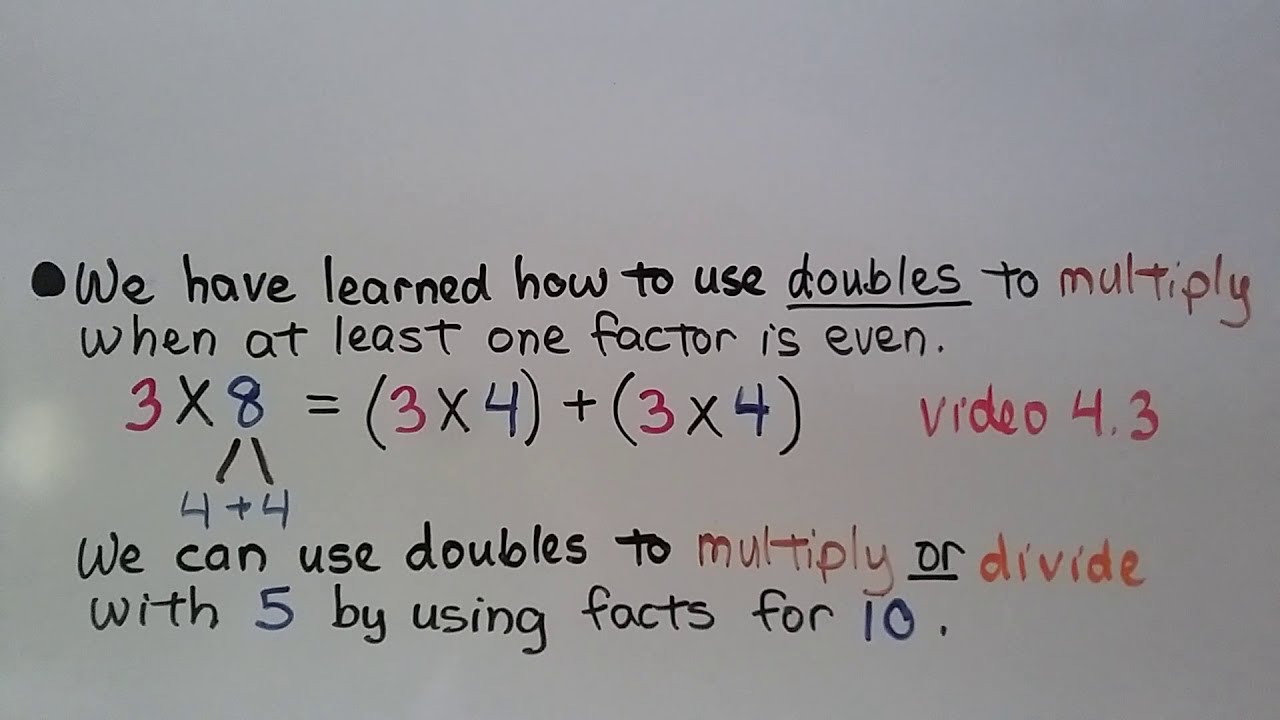 ● We have learned how to use doubles to multiply
when at least one factor is even.
3 X 8 = (3 X 4) + (3 X 4) video 4.3
4 + 4
We can use doubles to multiply or divide
with 5 by using facts for 10.